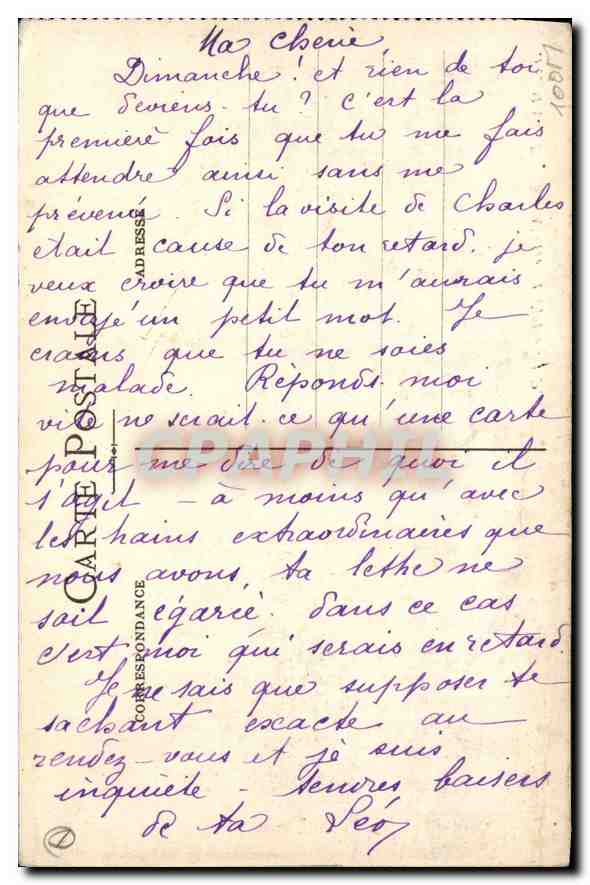 Ma cherie
Dimanche! et rien de toi
que deviens-tu? c'est la
première fois que tu me fais
attendre ainsi sans me
prévenir. Si la visite de Charles
etait cause de ton retard. je
veux croire que tu m'aurais
envoyé un petit mot. Je
crains que tu ne soies
malade. Réponds-moi
vite ne serait-ce qu'une carte
pour me dire de quoi il
s'agit - à moins qu'avec
les trains extraordinaires que
nous avons, ta lettre ne
soit égarée. dans ce cas
c'est moi qui serais en retard.
Je ne sais que supposer te
sachant exacte au
rendez-vous et je suis
inquiète - tendres baisers
de ta Léo
CARTE POSTALE
ADRESSE
CORRESPONDANCE
CPAPHIL